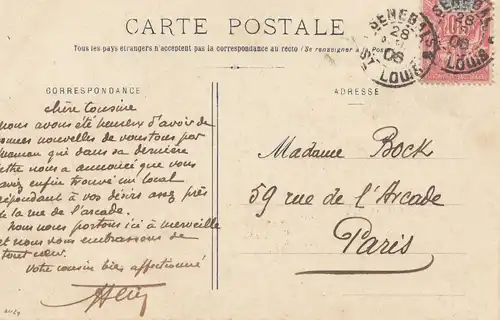 CARTE POSTALE
Tous les pays étrangers n'acceptent pas la correspondance au recto (Se renseigner à la Poste)
CORRESPONDANCE
ADRESSE
SENEGAL
28
06
ST LOUIS
10
chère Cousine
nous avons été heureux d'avoir de
bonnes nouvelles de vous tous par
maman qui dans sa dernière
lettre nous a annoncé que vous
aviez enfin trouvé un local
répondant à vos désirs assez près
de la rue de l'arcade.
Nous nous portons ici à merveille
et nous vous embrassons de
tout cœur.
Votre cousin bien affectionné
Madame Bock
59 rue de l'Arcade
Paris